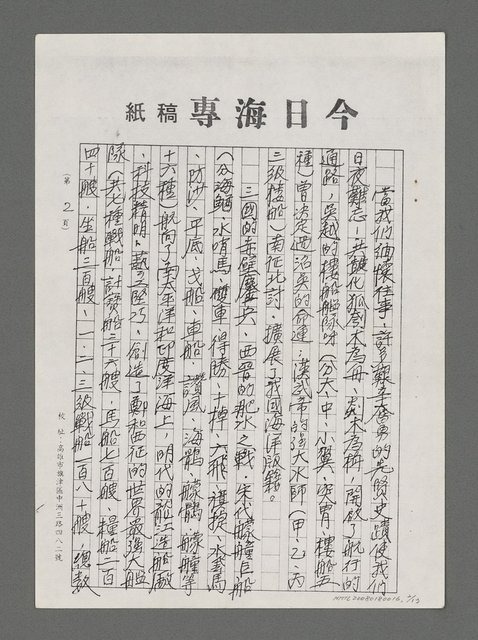 今日海專稿紙
當我們緬懷往事，許多艱辛奮勇的先賢史蹟使我們
日夜難忘，共鼓化狐刳木為舟，剡木為楫，開啟了航行的
通路，吳越的樓船艦隊呀（分大、中、小翼、突冒、樓船五
種）曾決定過沿吳的命運，漢武帝的強大水師（甲、乙、丙
三級樓船）南征北討，擴展了我國海洋版籍。
三國的赤壁鏖兵，西晉的肥水之戰，宋代艨艟巨船
（分海鰌、水哨馬、雙車、得勝、十棹、大飛、旗捷、水馬
、防沙、平底、戈船、車船、讚風、海鶻、艨艟等
十六種）航向了南太平洋和印度洋海上，明代的龍江造船廠
，科技精明，藝工堅巧，創造了鄭和西征的世界最強大艦
隊（共七種戰船，計寶船三十六艘，馬船七百艘，糧船二百
四十艘，坐船三百艘，一、二、三級戰船一百八十艘，總數
（第 2 頁）
校址：高雄市旗津區中洲三路四八二號
NMTL20080180016, 2/13